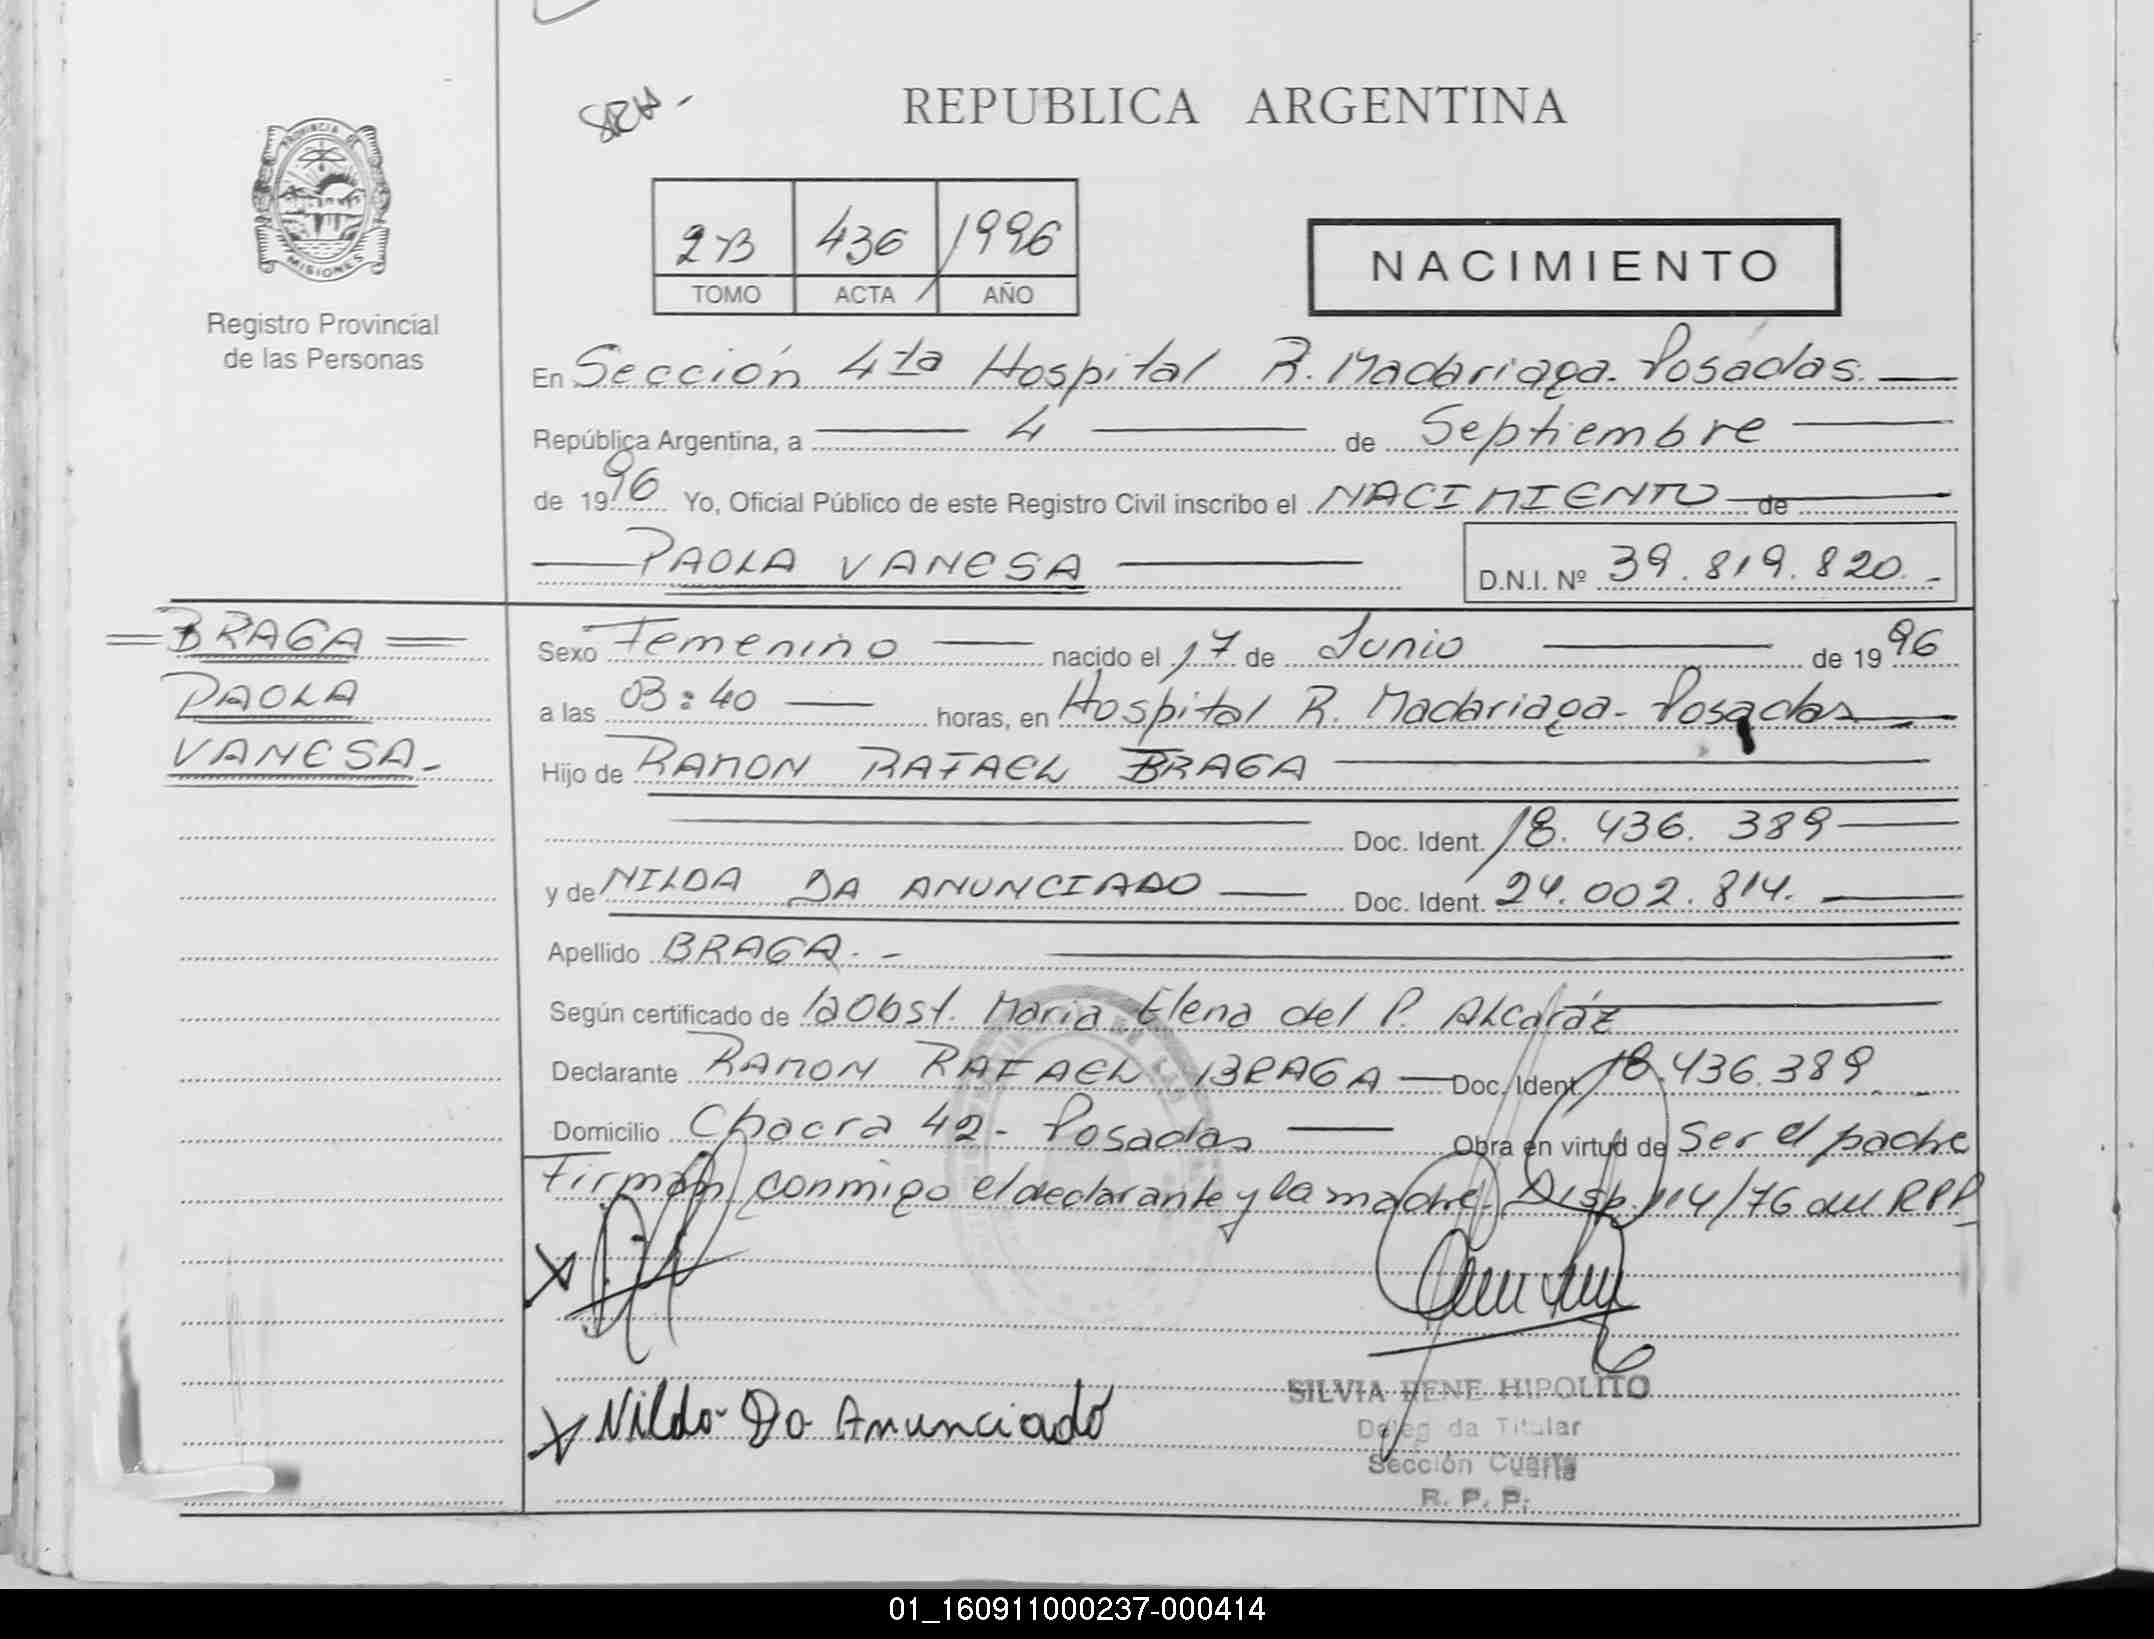 REPUBLICA ARGENTINA
PROVINCIA DE
MISIONES
Registro Provincial
de las Personas
2 B 436 1996
TOMO ACTA AÑO
NACIMIENTO
En Sección 4ta Hospital R. Madariaga. Posadas.
República Argentina, a 4 de Septiembre
de 1996 Yo, Oficial Público de este Registro Civil inscribo el NACIMIENTO de
PAOLA VANESA D.N.I. Nº 39.819.820.-
BRAGA
PAOLA
VANESA-
Sexo Femenino nacido el 17 de Junio de 1996
a las 03:40 horas, en Hospital R. Madariaga- Posadas
Hijo de RAMON RAFAEL BRAGA
Doc. Ident. 18.436.389
y de NILDA DA ANUNCIADO Doc. Ident. 24.002.814.
Apellido BRAGA.-
Según certificado de la Obst. Maria Elena del P. Alcaráz
Declarante RAMON RAFAEL BRAGA Doc. Ident. 18.436.389
Domicilio Chacra 42- Posadas Obra en virtud de Ser el padre
Firman conmigo el declarante y la madre. Disp. 114/76 del RPP
Nilda Da Anunciado
SILVIA RENE HIPOLITO
Delegada Titular
Sección Cuarta
R. P. P.
01_160911000237-000414